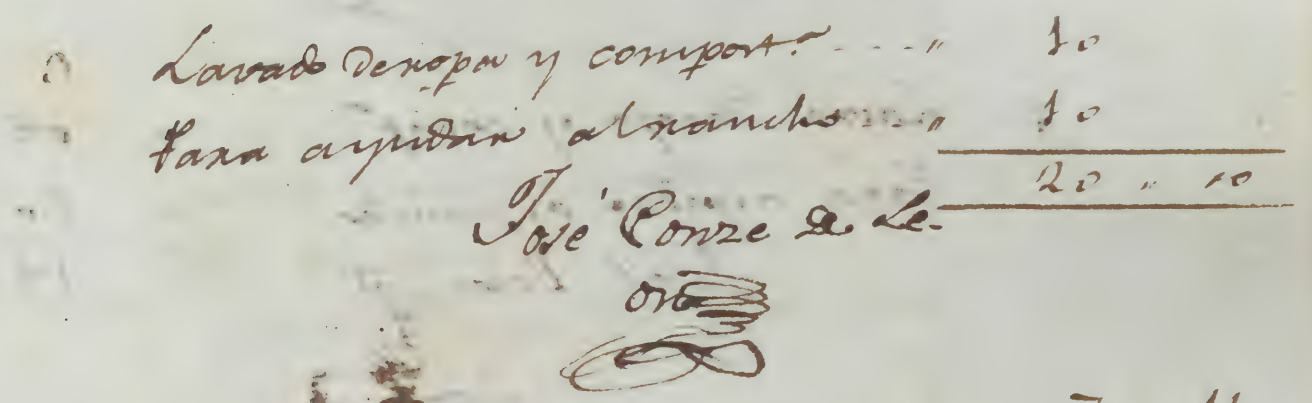 Lavado de ropa y compost.ª .... „ 10
Para ayudar al rancho .... „ 10
20 „ 10
José Ponze de Le-
on